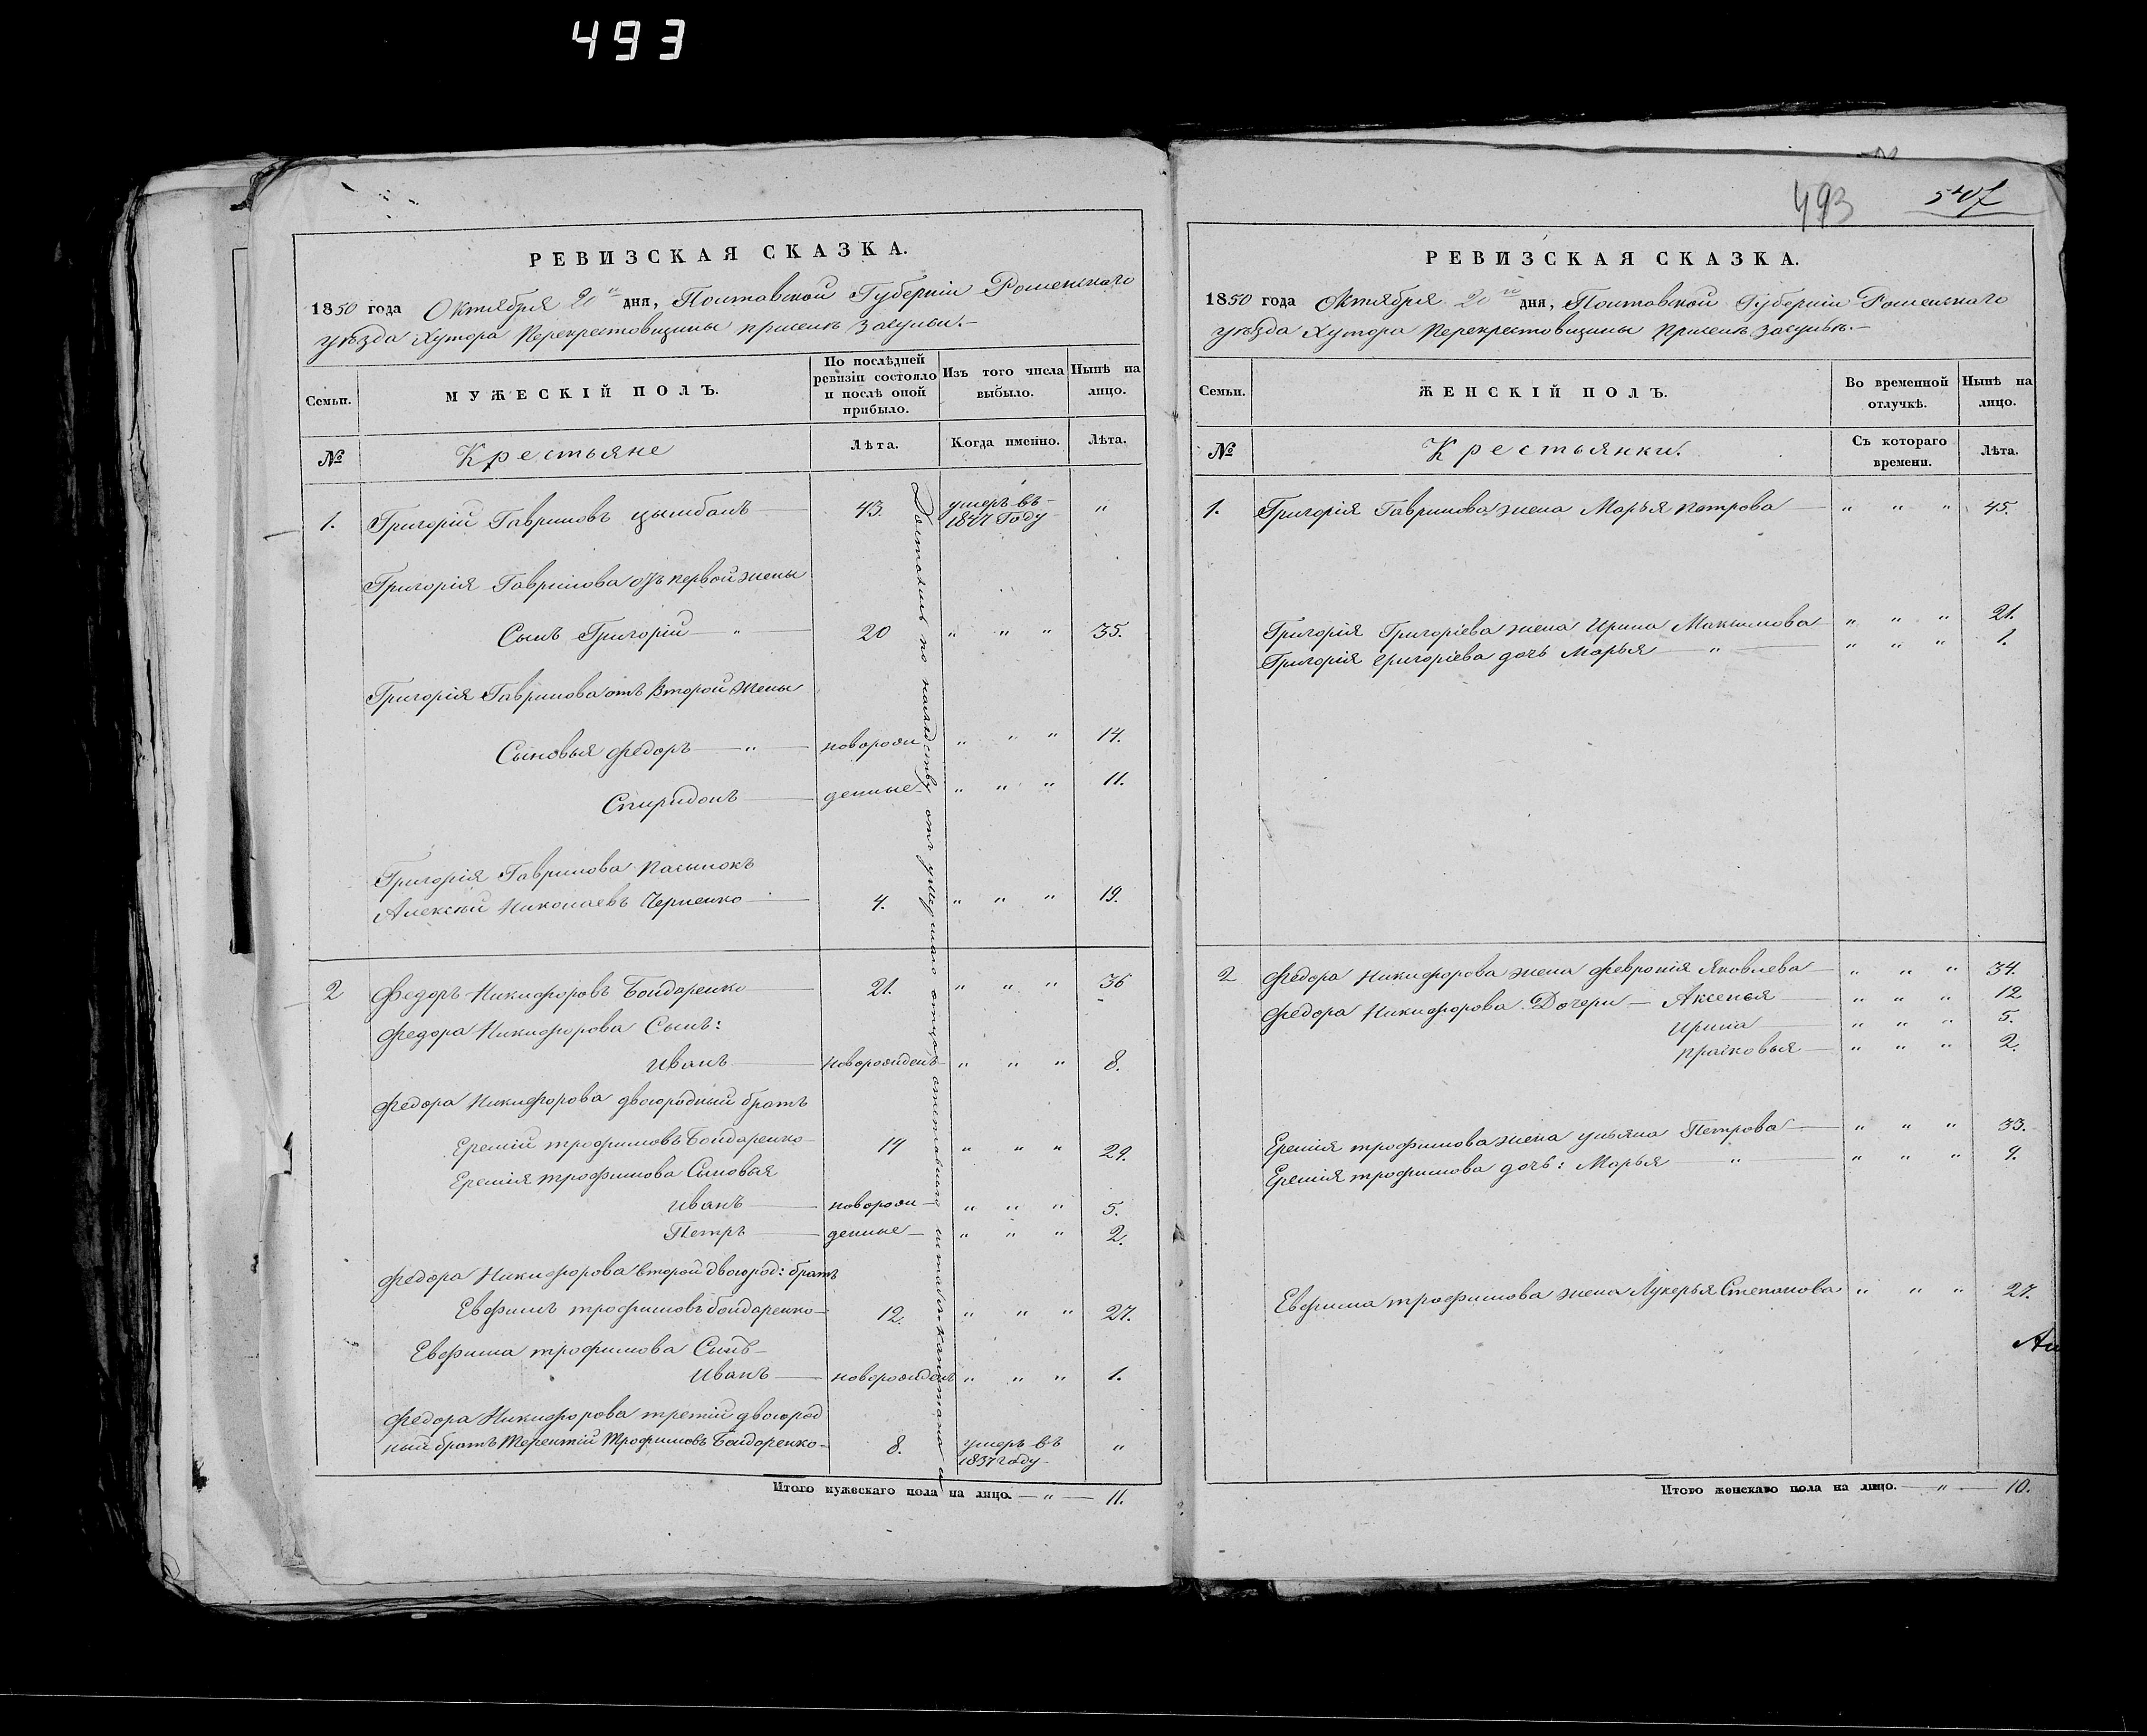 493
РЕВИЗСКАЯ СКАЗКА.
1850 года Октября 20го дня, Полтавской Губерніи Роменского
уѣзда Хутора Перекрестовщины при селѣ Засульи.—
Семьи.
МУЖЕСКІЙ ПОЛЪ.
По послѣдней ревизіи состояло и послѣ оной прибыло.
Изъ того числа выбыло.
Нынѣ на лицо.
№
Крестьяне
Лѣта.
Когда именно.
Лѣта.
1. Григорій Гавриловъ Цымбалъ 43. умеръ въ 1844 Году "
Григорія Гаврилова отъ первой жены
Сынъ Григорій — " — 20 " " " 35.
Григорія Гаврилова отъ Второй жены
Сыновья Федоръ — " — новорож " " " 14.
Спиридонъ — денные " " " 11.
Григорія Гаврилова пасынокъ
Алексѣй Николаевъ Черненко — 4. " " " 19.
2 Федоръ Никифоровъ Бондаренко — 21. " " " 36
Федора Никифорова Сынъ:
Иванъ — новорожденъ " " " 8.
Федора Никифорова двоюродный братъ
Еремій Трофимовъ Бондаренко — 14 " " " 29.
Еремія Трофимова Сыновья
Иванъ — новорож— " " " 5.
Петръ — денные — " " " 2.
Федора Никифорова второй двоюрод: братъ
Евфимъ Трофимовъ Бондаренко — 12. " " " 27.
Евфима Трофимова Сынъ—
Иванъ — новорожденъ " " " 1.
Федора Никифорова третій двоюрод
ный братъ Терентій Трофимовъ Бондаренко — 8. умеръ въ 1837 году "
Итого мужескаго пола на лицо. — " — 11.
по наслѣдству отъ умершаго отца
493
507
РЕВИЗСКАЯ СКАЗКА.
1850 года Октября 20го дня, Полтавской Губерніи Роменского
уѣзда Хутора Перекрестовщины при селѣ Засульѣ.—
Семьи.
ЖЕНСКІЙ ПОЛЪ.
Во временной отлучкѣ.
Нынѣ на лицо.
№
Крестьянки.
Съ котораго времени.
Лѣта.
1. Григорія Гаврилова жена Марья Петрова — " " " 45.
Григорія Григоріева жена Ирина Максимова " " " 21.
Григорія Григоріева дочь Марья — " — " " " 1.
2 Федора Никифорова жена Февронія Яковлева — " " " 34.
Федора Никифорова Дочери — Аксенья — " " " 12
Ирина — " " " 5.
Прасковья — " " " 2.
Еремія Трофимова жена Ульяна Петрова — " " " 33.
Еремія Трофимова дочь: Марья — " — " " " 9.
Евфима Трофимова жена Лукерья Степанова " " " 27.
Итого женскаго пола на лицо. — " — 10.